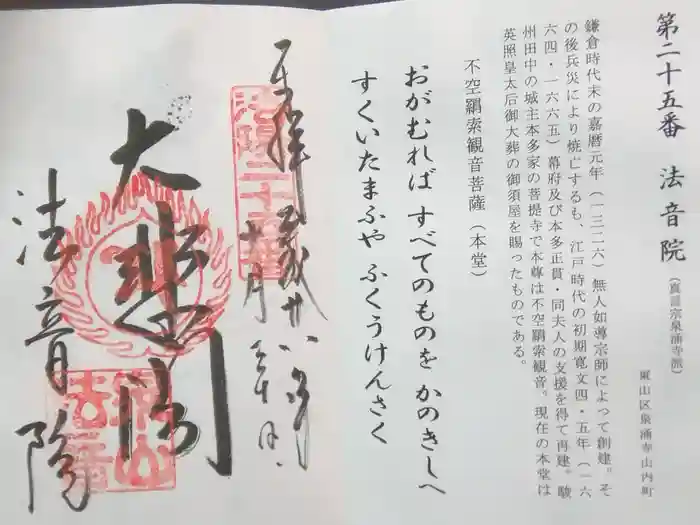 第二十五番 法音院（真言宗泉涌寺派）
東山区泉涌寺山内町
鎌倉時代末の嘉暦元年（一三二六）無人如導宗師によって創建。そ
の後兵災により焼亡するも、江戸時代の初期寛文四・五年（一六
六四・一六六五）幕府及び本多正貫・同夫人の支援を得て再建。駿
州田中の城主本多家の菩提寺で本尊は不空羂索観音。現在の本堂は
英照皇太后御大葬の御須屋を賜ったものである。
不空羂索観音菩薩（本堂）
おがむれば すべてのものを かのきしへ
すくいたまふや ふくうけんさく
奉拝 廿八
十月 三十日
洛陽二十五番
大悲閣
法音院